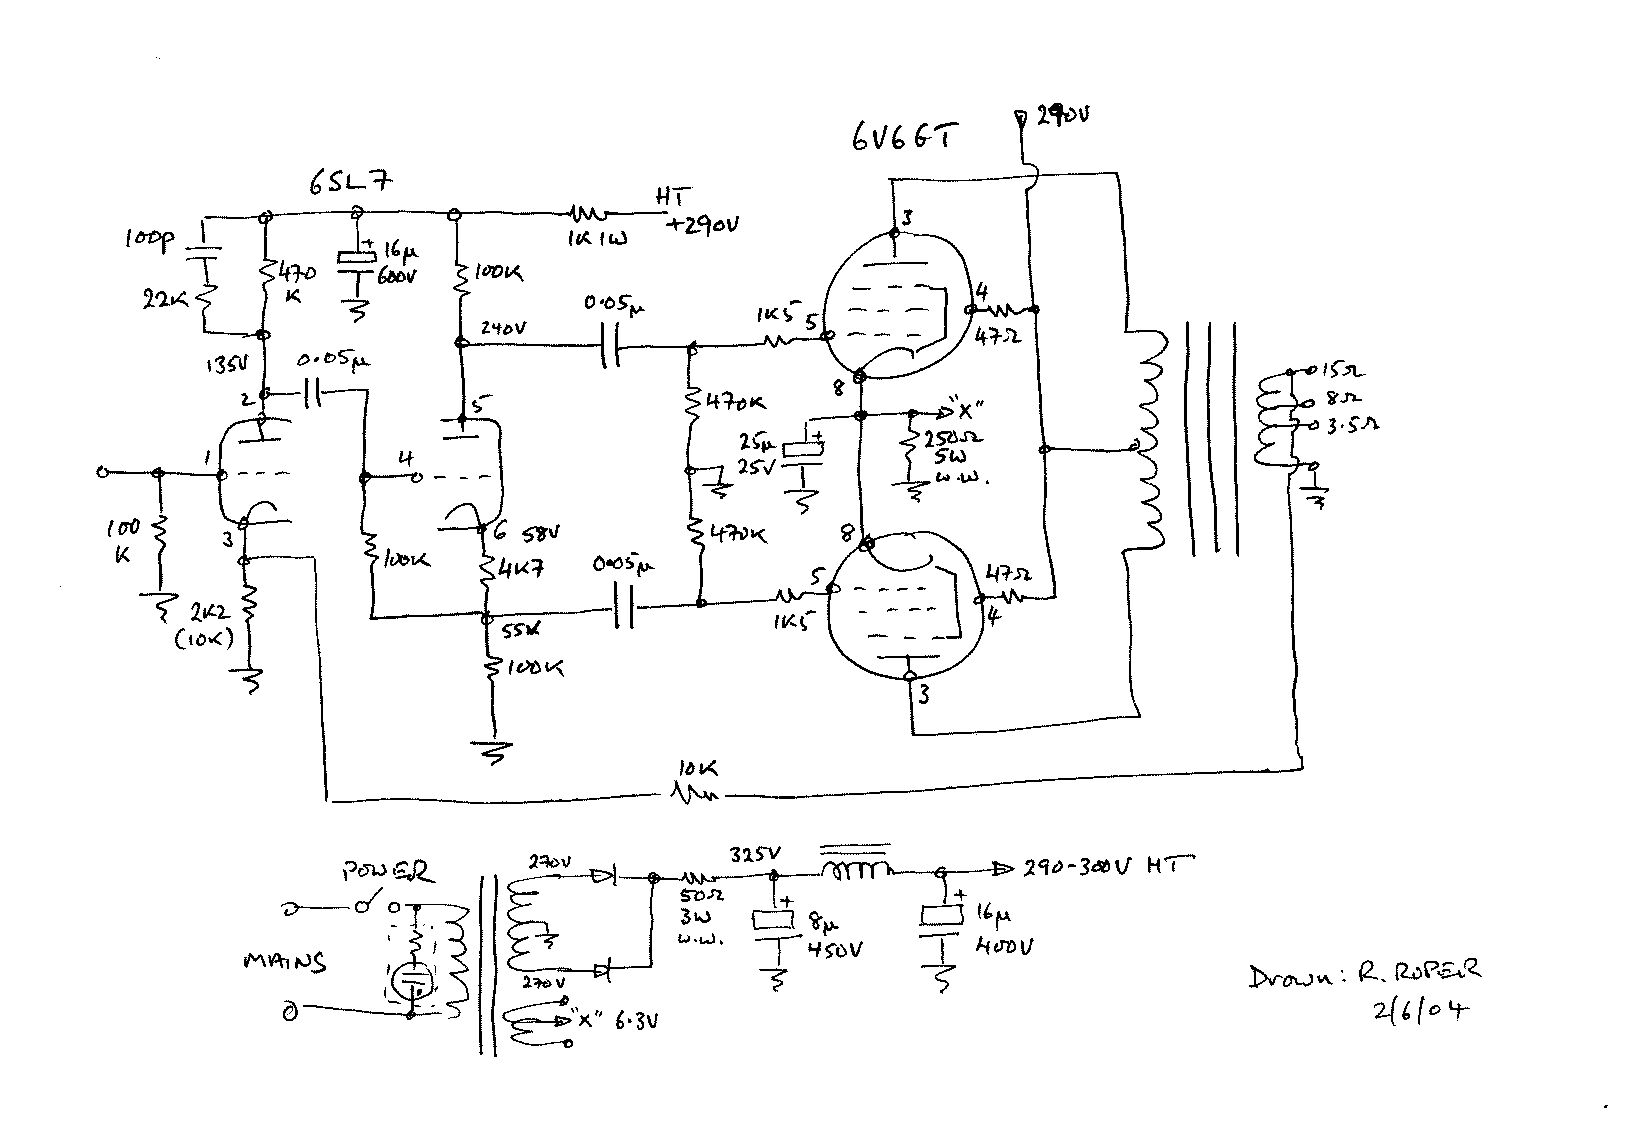 6V6GT
290V
6SL7
HT
+290V
1K 1W
100p
22K
470
K
+
16µ
600V
100K
0.05µ
240V
1K5
5
3
4
47Ω
8
135V
0.05µ
2
5
1
4
3
6
58V
470K
25µ
25V
+
"X"
250Ω
5W
W.W.
15Ω
8Ω
3.5Ω
100
K
2K2
(10K)
100K
4K7
55V
100K
0.05µ
470K
1K5
5
8
47Ω
4
3
10K
POWER
MAINS
270V
270V
"X" 6.3V
50Ω
3W
W.W.
325V
+
8µ
450V
+
16µ
400V
290-300V HT
Drawn: R. ROPER
2/6/04